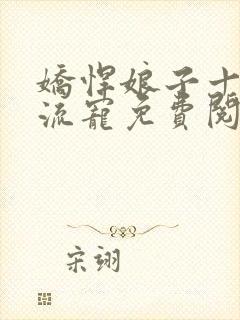 嬌悍娘子十
流寵免費閱
宋翊